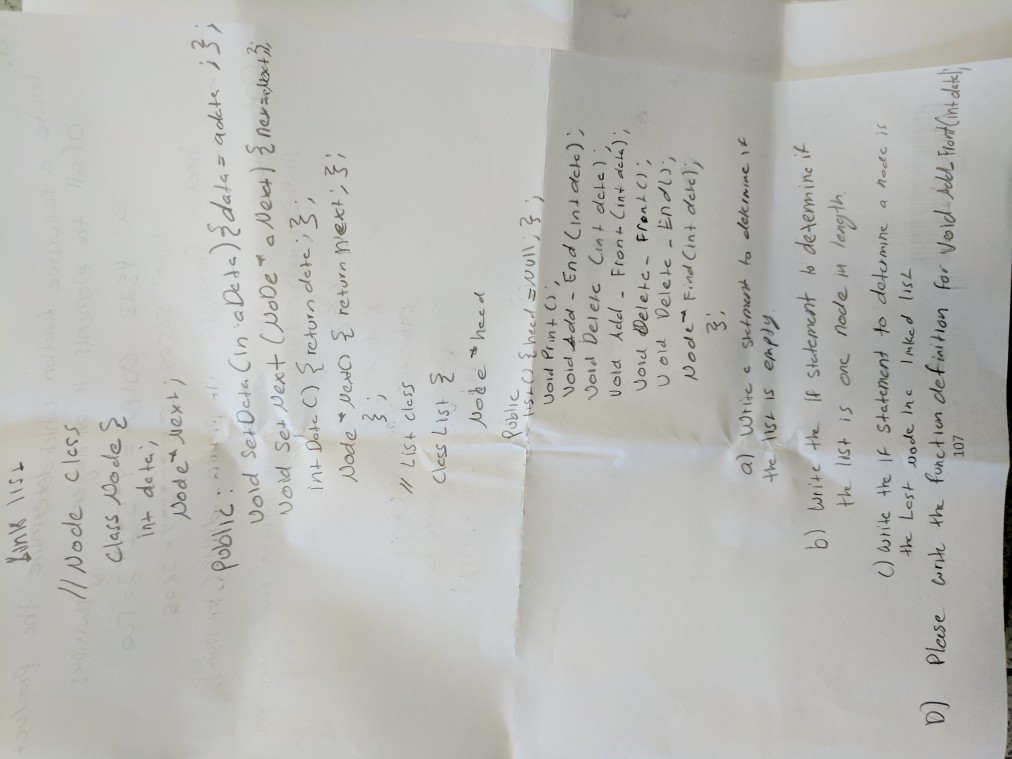 Link list
// Node class
class Node {
int data;
Node* Next;
public:
Void setData(in aData){data = adate ;};
Void Set Next (NoDe* aNext) {
int Date () { return date; };
Node* Next() { return Next; };
};
// List class
class List {
Node *head
Public
list() { head = Null; };
Void Print ();
Void Add - End (int date);
Void Delete (int date);
Void Add _ Front (int data);
Void Delete - Front ();
Void Delete - End ();
Node* Find (int date);
};
a) Write a statment to determine if
the list is empty.
b) Write the if statement to determine if
the list is one node in length.
c) Write the If statement to determine a node is
the Last Node Ine linked list
D) Please write the function definition for Void Add_Front(int date);
107